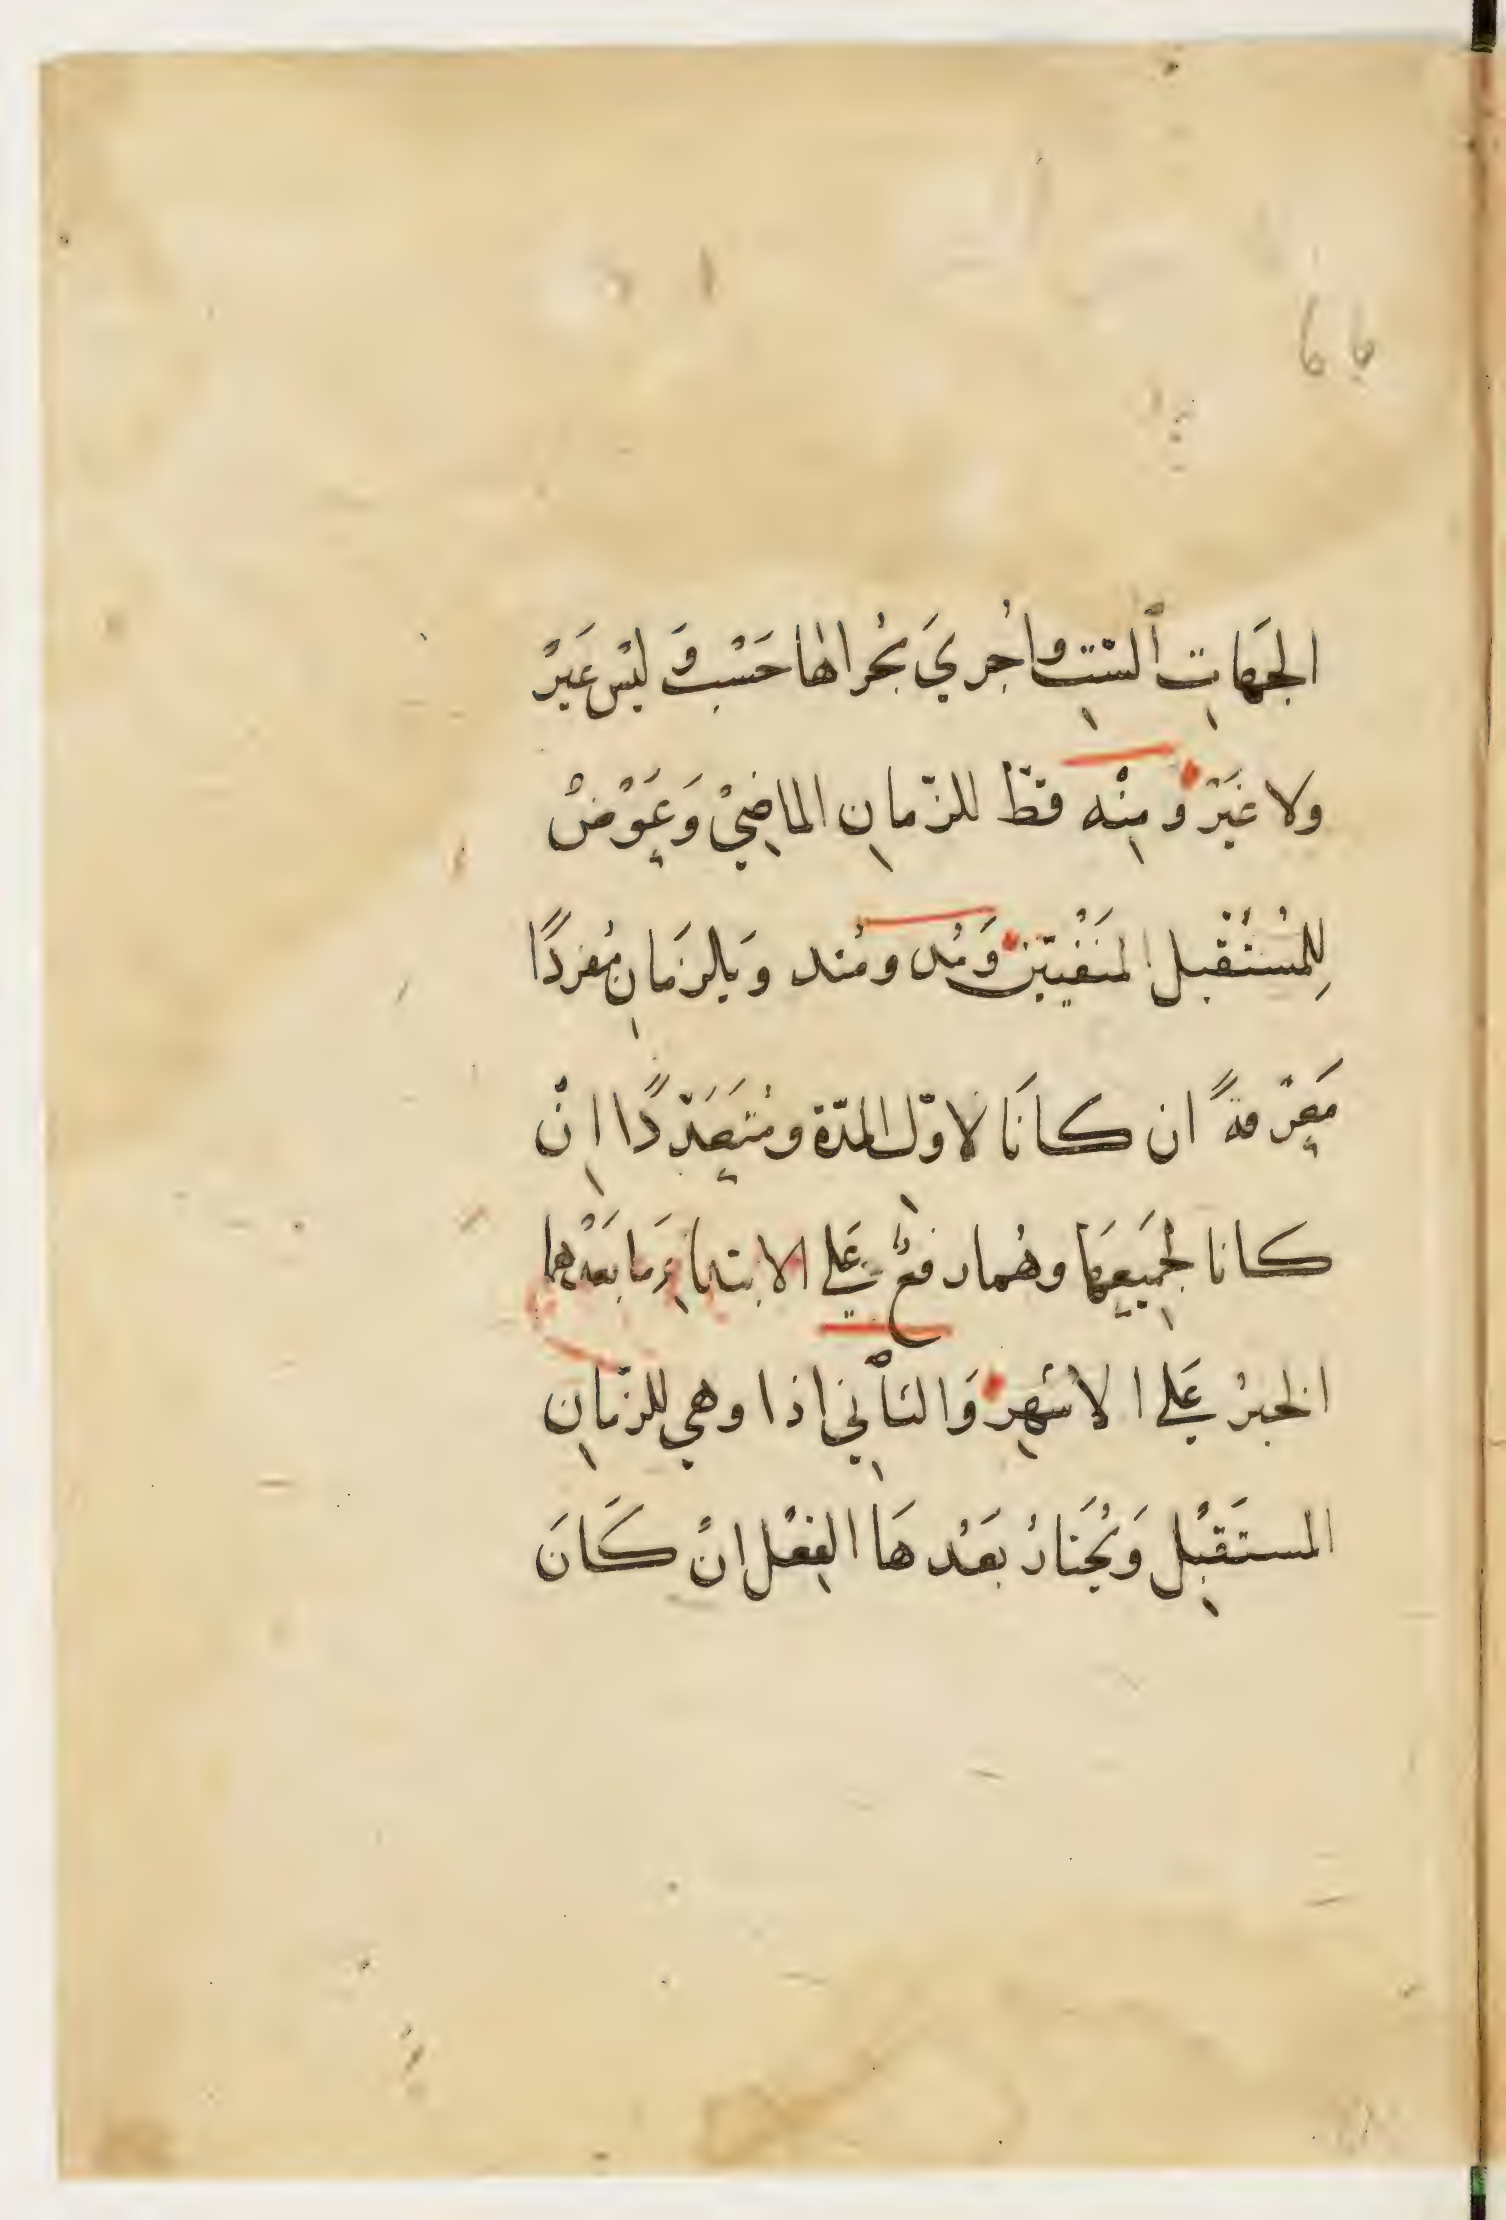 الجَهَاتِ ٱلسّتِ واُجرِيَ مُجراهَا حَسْب وَ ليْس غَيْرُ
ولا غَيْرُ وَمِنْه قطّ للزّمانِ الماضِيْ وَعَوْضُ
لِلمُسْتُقْبل المَنفْيّين وَمُد ومُند وَيلِ الزَمانِ مُفردًا
مَعْرفةً ان كانَا لاوّل المدّة ومُتعَدّدًا اِنْ
كانا لجِمَيعهَا وهُما رفعٌ عَلى الابتداءِ وَمابَعْدهما
الخبرُ عَلى الاشهِر وَالتأنِي اذا وهي للزّمانِ
المستَقبِل وَيُختارُ بَعْدهَا الفِعْل انْ كَانَ